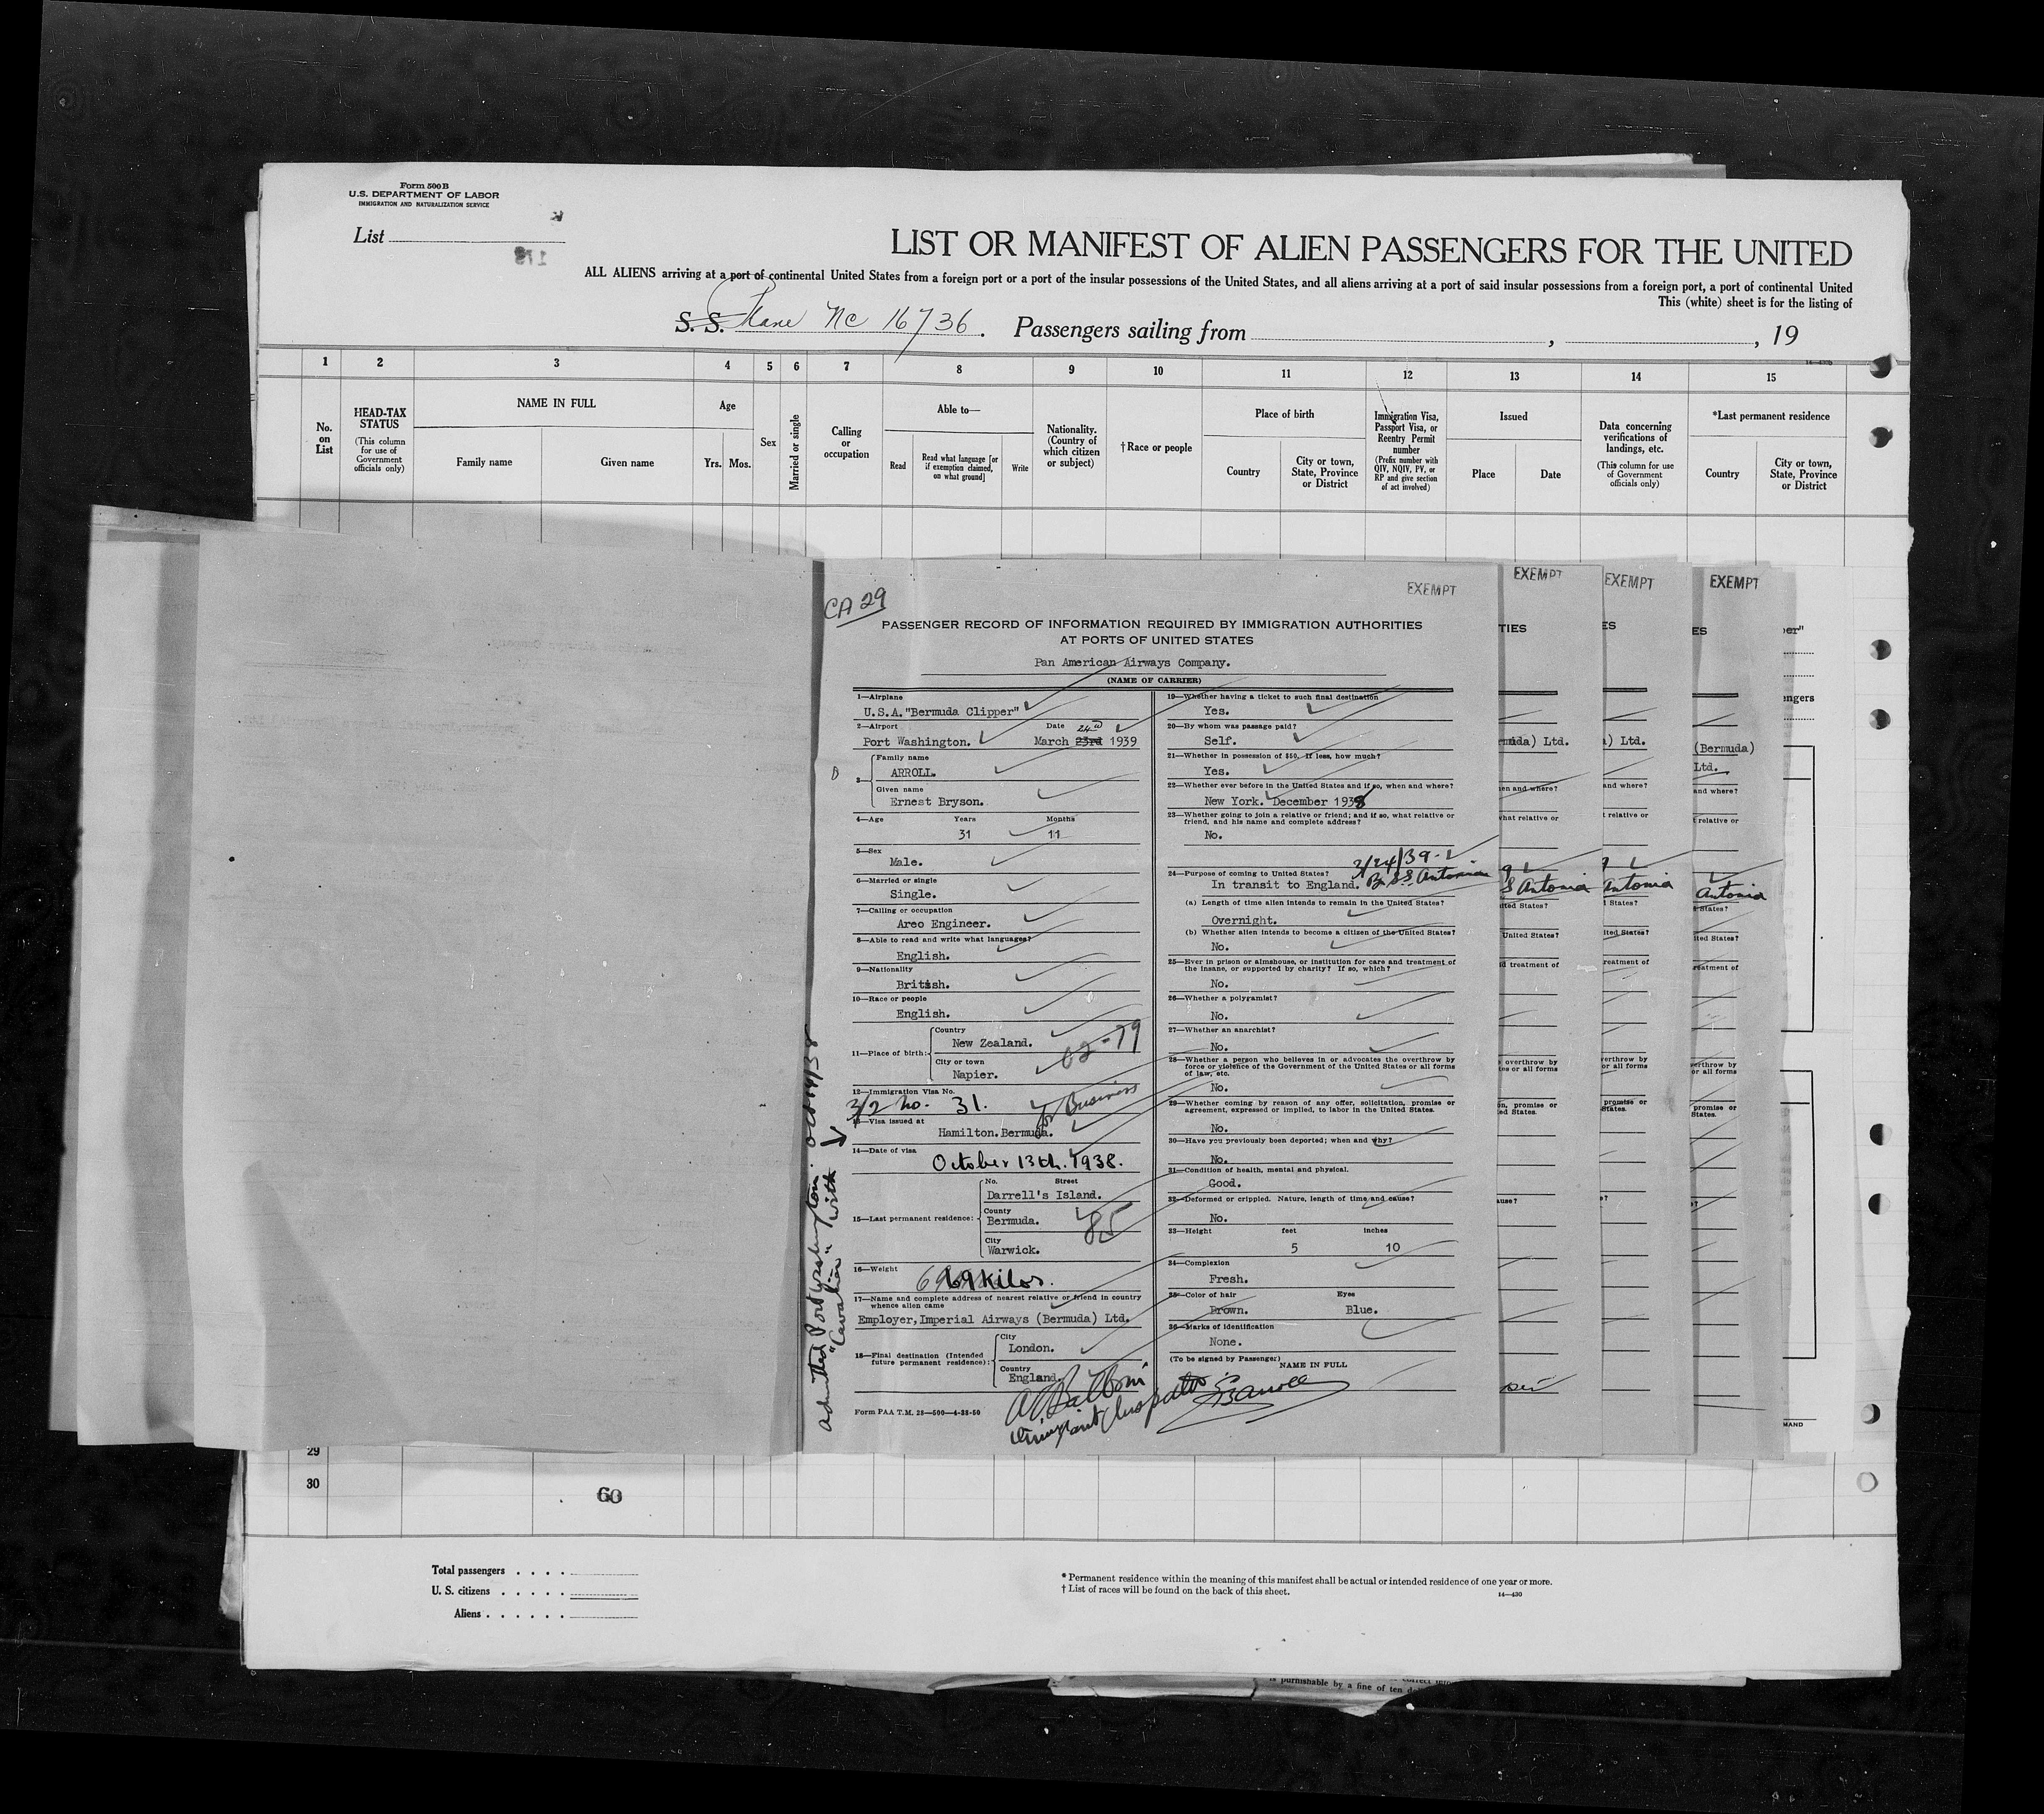 Form 500 B
U.S. DEPARTMENT OF LABOR
IMMIGRATION AND NATURALIZATION SERVICE
List
LIST OR MANIFEST OF ALIEN PASSENGERS FOR THE UNITED
ALL ALIENS arriving at a port of continental United States from a foreign port or a port of the insular possessions of the United States, and all aliens arriving at a port of said insular possessions from a foreign port, a port of continental United
This (white) sheet is for the listing of
S. S. Plane NC 16736. Passengers sailing from , , 19
1 2 3 4 5 6 7 8 9 10 11 12 13 14 15
No. on List
HEAD-TAX STATUS
(This column for use of Government officials only)
NAME IN FULL
Family name Given name
Age
Yrs. Mos.
Sex
Married or single
Calling or occupation
Able to—
Read
Read what language [or if exemption claimed, on what ground]
Write
Nationality. (Country of which citizen or subject)
†Race or people
Place of birth
Country
City or town, State, Province or District
Immigration Visa, Passport Visa, or Reentry Permit number
(Prefix number with QIV, NQIV, PV, or RP and give section of act involved)
Issued
Place Date
Data concerning verifications of landings, etc.
(This column for use of Government officials only)
*Last permanent residence
Country
City or town, State, Province or District
CA 29
EXEMPT
PASSENGER RECORD OF INFORMATION REQUIRED BY IMMIGRATION AUTHORITIES
AT PORTS OF UNITED STATES
Pan American Airways Company.
(NAME OF CARRIER)
1—Airplane
U.S.A."Bermuda Clipper"
2—Airport Date
24th
Port Washington. March 23rd 1939
3 Family name
ARROLL.
Given name
Ernest Bryson.
4—Age Years Months
31 11
5—Sex
Male.
6—Married or single
Single.
7—Calling or occupation
Areo Engineer.
8—Able to read and write what languages?
English.
9—Nationality
British.
10—Race or people
English.
11—Place of birth:
Country
New Zealand.
City or town
Napier.
02-79
12—Immigration Visa No.
3/2 No. 31. for Business
13—Visa issued at
Hamilton.Bermuda.
14—Date of visa
October 13th. 1938.
15—Last permanent residence:
No. Street
Darrell's Island.
County
Bermuda.
City
Warwick.
85
16—Weight
69 Kilos.
17—Name and complete address of nearest relative or friend in country
whence alien came
Employer,Imperial Airways (Bermuda) Ltd.
18—Final destination (Intended
future permanent residence):
City
London.
Country
England.
Form PAA T.M. 28—500—4-38-50
Admitted Port Washington Oct 14/38
"Cavalier" with
19—Whether having a ticket to such final destination
Yes.
20—By whom was passage paid?
Self.
21—Whether in possession of $50. If less, how much?
Yes.
22—Whether ever before in the United States and if so, when and where?
New York. December 1938
23—Whether going to join a relative or friend; and if so, what relative or
friend, and his name and complete address?
No.
3/24/39
24—Purpose of coming to United States?
In transit to England. Br. SS Antonia
(a) Length of time alien intends to remain in the United States?
Overnight.
(b) Whether alien intends to become a citizen of the United States?
No.
25—Ever in prison or almshouse, or institution for care and treatment of
the insane, or supported by charity? If so, which?
No.
26—Whether a polygamist?
No.
27—Whether an anarchist?
No.
28—Whether a person who believes in or advocates the overthrow by
force or violence of the Government of the United States or all forms
of law, etc.
No.
29—Whether coming by reason of any offer, solicitation, promise or
agreement, expressed or implied, to labor in the United States.
No.
30—Have you previously been deported; when and why?
No.
31—Condition of health, mental and physical.
Good.
32—Deformed or crippled. Nature, length of time and cause?
No.
33—Height feet inches
5 10
34—Complexion
Fresh.
35—Color of hair Eyes
Brown. Blue.
36—Marks of identification
None.
(To be signed by Passenger)
NAME IN FULL
EXEMPT
EXEMPT
EXEMPT
29
30
60
Total passengers . . . .
U. S. citizens . . . . .
Aliens . . . . . .
* Permanent residence within the meaning of this manifest shall be actual or intended residence of one year or more.
† List of races will be found on the back of this sheet.
14—430